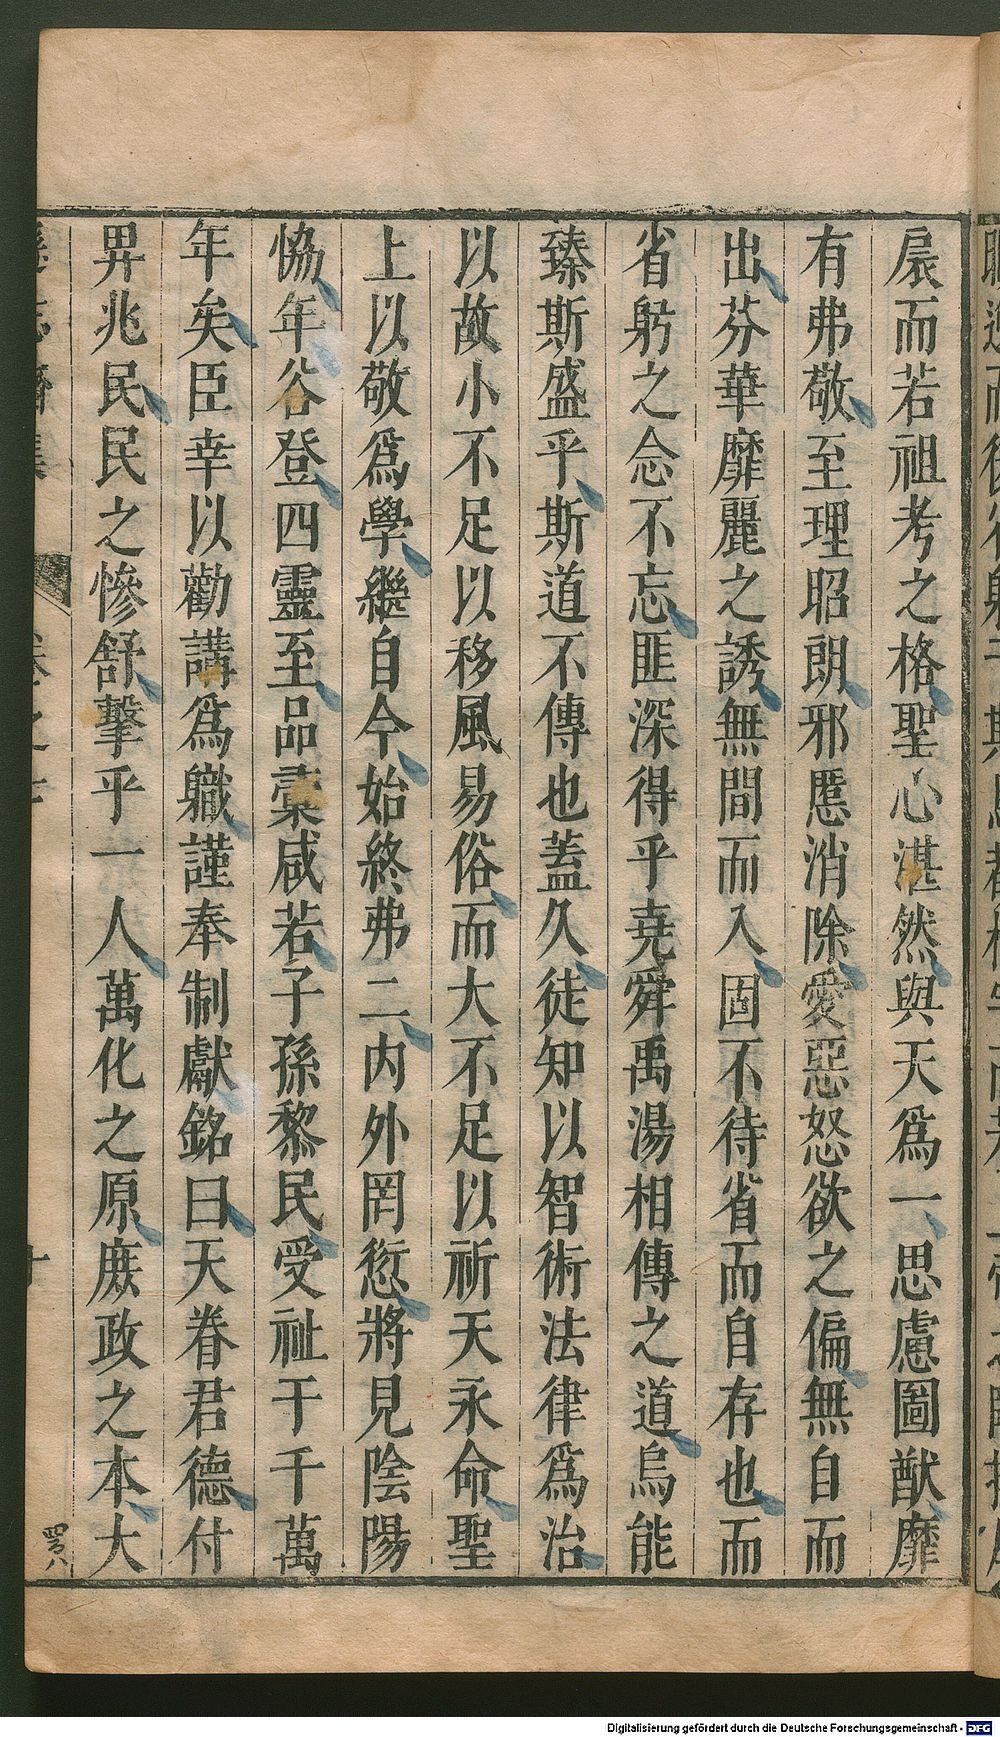 扆而若祖考之格聖心湛然與天爲一思慮圖猷靡
有弗敬至理昭朗邪慝消除愛惡怒欲之偏無自而
出芬華靡麗之誘無間而入固不待省而自存也而
省躬之念不忘匪深得乎堯舜禹湯相傳之道烏能
臻斯盛乎斯道不傳也蓋久徒知以智術法律爲治
以故小不足以移風易俗而大不足以祈天永命聖
上以敬爲學繼自今始終弗二内外罔愆將見陰陽
恊年谷登四靈至品彚咸若子孫黎民受祉于千萬
年矣臣幸以勸講爲職謹奉制獻銘曰天眷君德付
畀兆民民之慘舒擊乎一人萬化之原庶政之本大
卷之七
十
Digitalisierung gefördert durch die Deutsche Forschungsgemeinschaft - DFG